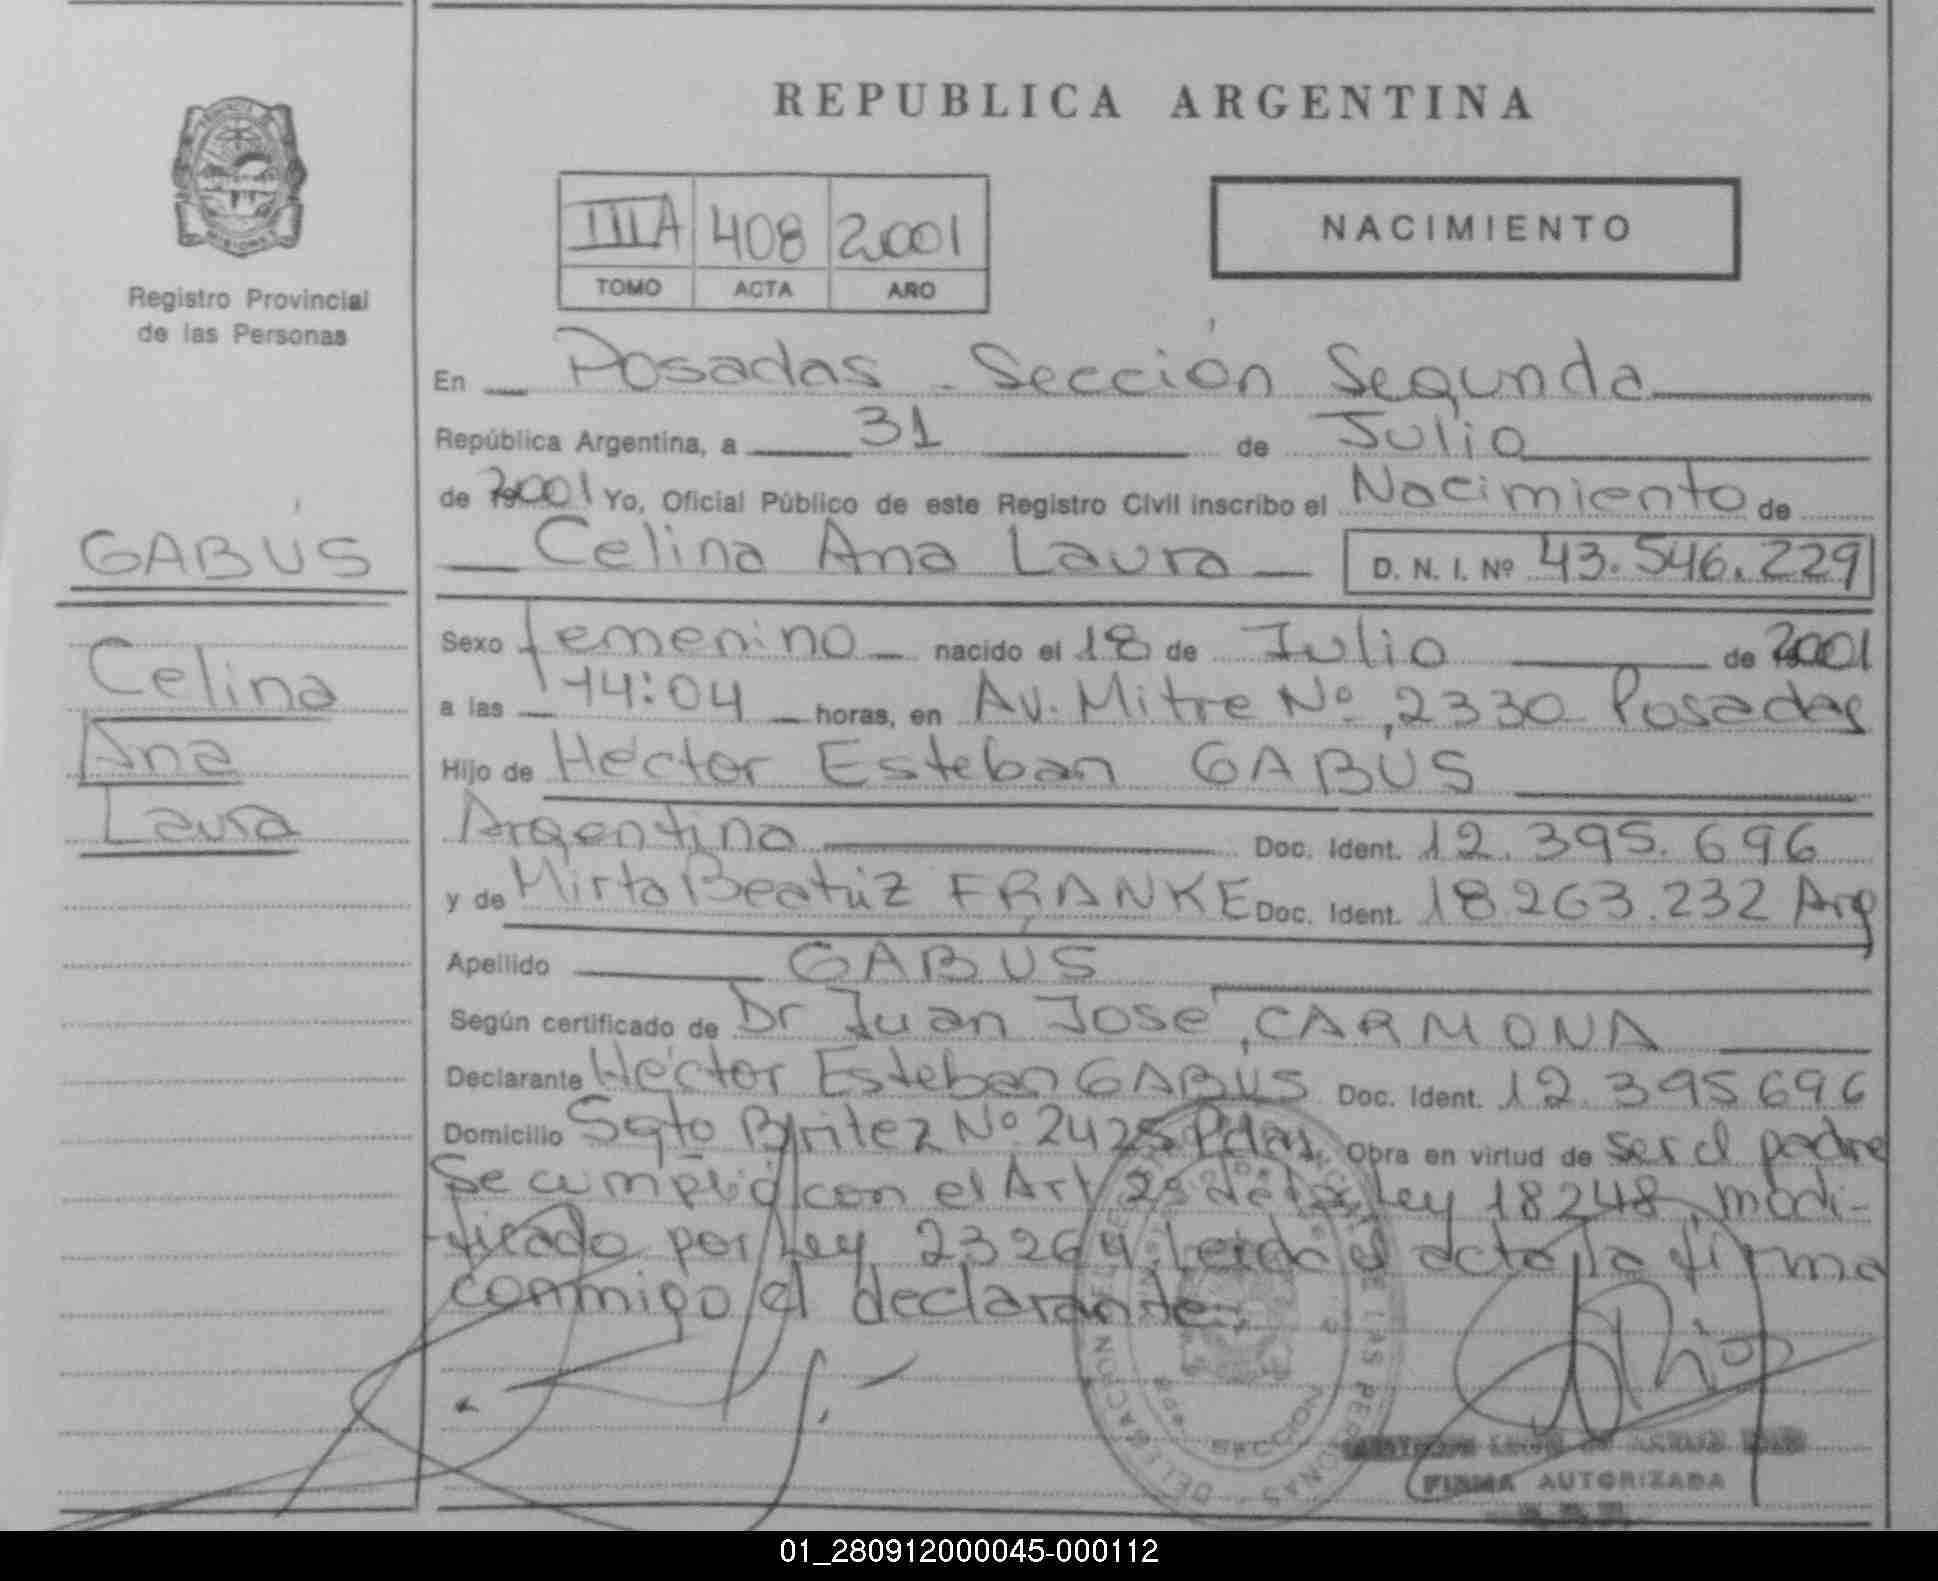 REPUBLICA ARGENTINA
Registro Provincial
de las Personas
IIIA 408 2001
TOMO ACTA AÑO
NACIMIENTO
En Posadas - Sección Segunda
República Argentina, a 31 de Julio
de 2001 Yo, Oficial Público de este Registro Civil inscribo el Nacimiento de
Celina Ana Laura D. N. I. Nº 43.546.229
GABÚS
Celina
Ana
Laura
Sexo femenino nacido el 18 de Julio de 2001
a las 14:04 horas, en Av. Mitre Nº 2330 Posadas
Hijo de Héctor Esteban GABÚS
Argentino Doc. Ident. 12.395.696
y de Mirta Beatriz FRANKE Doc. Ident. 18.263.232 Arg
Apellido GABÚS
Según certificado de Dr Juan José CARMONA
Declarante Héctor Esteban GABÚS Doc. Ident. 12.395696
Domicilio Sgto Britez Nº 2425 Pdas. Obra en virtud de ser el padre
Se cumplió con el Art 2º de la Ley 18248, modi-
ficado por Ley 23264, Leída el acta, la firma
conmigo el declarante.
DELEGACION DE LAS PERSONAS
SECCION
FIRMA AUTORIZADA
01_280912000045-000112